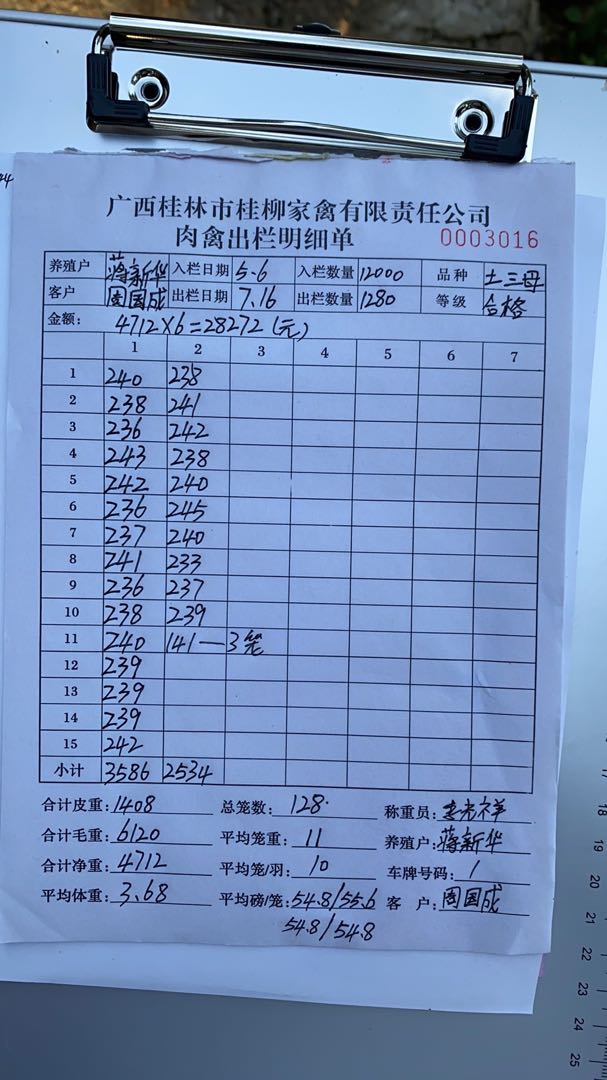 广西桂林市桂柳家禽有限责任公司
肉禽出栏明细单 0003016
养殖户 蒋新华 入栏日期 5.6 入栏数量 12000 品种 土三母
客户 周国成 出栏日期 7.16 出栏数量 1280 等级 合格
金额: 4712×6=28272(元)
1 2 3 4 5 6 7
1 240 238
2 238 241
3 236 242
4 243 238
5 242 240
6 236 245
7 237 240
8 241 233
9 236 237
10 238 239
11 240 141—3笼
12 239
13 239
14 239
15 242
小计 3586 2534
合计皮重: 1408 总笼数: 128. 称重员:
合计毛重: 6120 平均笼重: 11 养殖户: 蒋新华
合计净重: 4712 平均笼/羽: 10 车牌号码: /
平均体重: 3.68 平均磅/笼: 54.8/55.6 客 户: 周国成
54.8/54.8
16
17
18
19
20
21
22
23
24
25